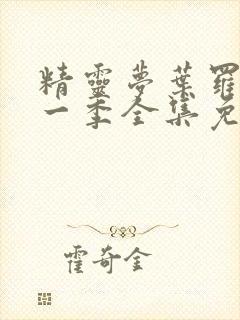 精靈夢葉羅
一季全集免
霍奇金